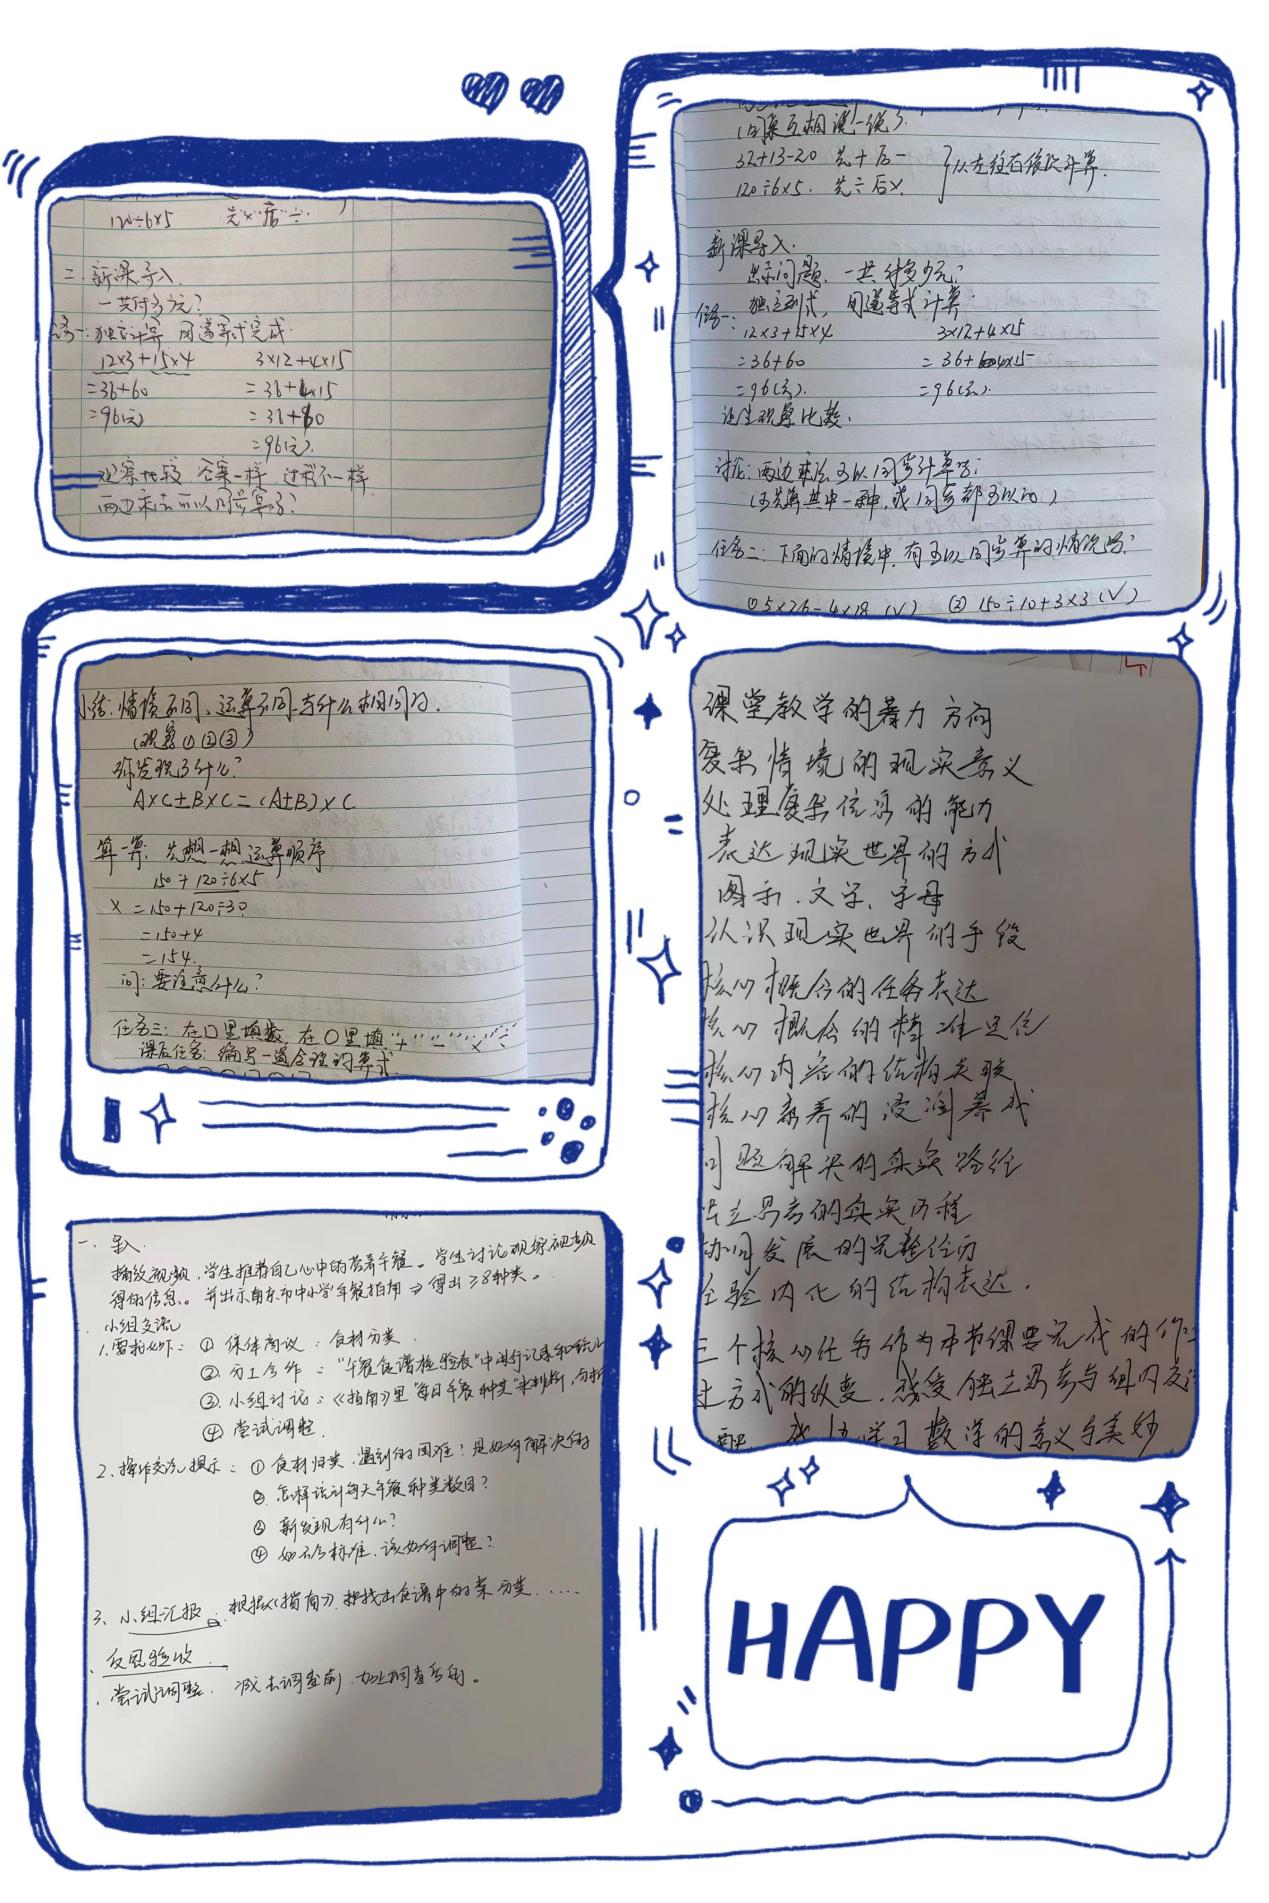 120÷6×5 先×后÷
二、新课导入
一共付多少元?
任务一:独立计算 用递等式完成
12×3+15×4 3×12+4×15
=36+60 =36+4×15
=96(元) =36+60
=96(元)
观察比较 答案一样,过程不一样
两边乘法可以同步算吗?
(同桌互相说一说)
32+13-20 先+后-
120÷6×5 先÷后×
从左往右依次计算.
新课导入.
出示问题,一共付多少元?
任务一:独立列式,用递等式计算
12×3+15×4 3×12+4×15
=36+60 =36+4×15
=96(元) =96(元)
让生观察比较.
讨论:两边乘法可以同步计算吗?
(可先算其中一种,或同步都可以的)
任务二:下面的情境中,有可以同步算的情况吗?
① 5×26-4×18 (√) ② 150÷10+3×3 (√)
小结:情境不同、运算不同,有什么相同的.
(观察①②③)
你发现了什么?
A×C±B×C=(A±B)×C
算一算:先想一想运算顺序
150+120÷6×5
× =150+120÷30
=150+4
=154.
问:要注意什么?
任务三:在□里填数,在○里填"+" "-" "×" "÷"
课后任务:编写一道合理的算式
课堂教学的着力方向
复杂情境的现实意义
处理复杂信息的能力
表达现实世界的方式
图示、文字、字母
认识现实世界的手段
核心概念的任务表达
核心概念的精准定位
核心内容的结构关联
核心素养的浸润养成
问题解决的真实路径
独立思考的真实历程
协同发展的完整经历
经验内化的结构表达.
三个核心任务作为本节课要完成的作
方式的改变,感受独立思考与组内交流
学习数学的意义与美妙
一、导入
播放视频,学生推荐自己心中的营养午餐。学生讨论观察视频
得的信息。并出示南京市中小学午餐指南⇒得出≥8种类。
小组交流
1.要求如下:① 集体商议:食材分类
② 分工合作:"午餐食谱检验表"中进行记录和统计
③ 小组讨论:《指南》里"每日午餐种类"来判断,分析
④ 尝试调整
2.操作交流提示:① 食材归类,遇到的困难?是如何解决的
② 怎样统计每天午餐种类数目?
③ 新发现有什么?
④ 如不合标准,该如何调整?
3、小组汇报:根据《指南》,把找出食谱中的菜分类……
反思验收
尝试调整. 减去调查前,加上调查后的。
HAPPY